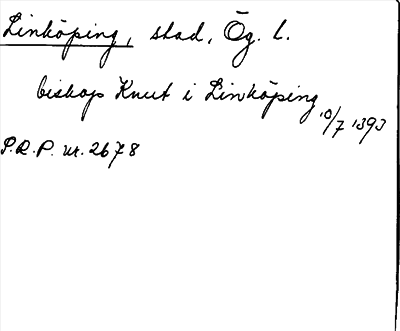 Linköping, stad, Ög. l.
biskop Knut i Linköping 10/7 1393
P.R.P. nr. 2678